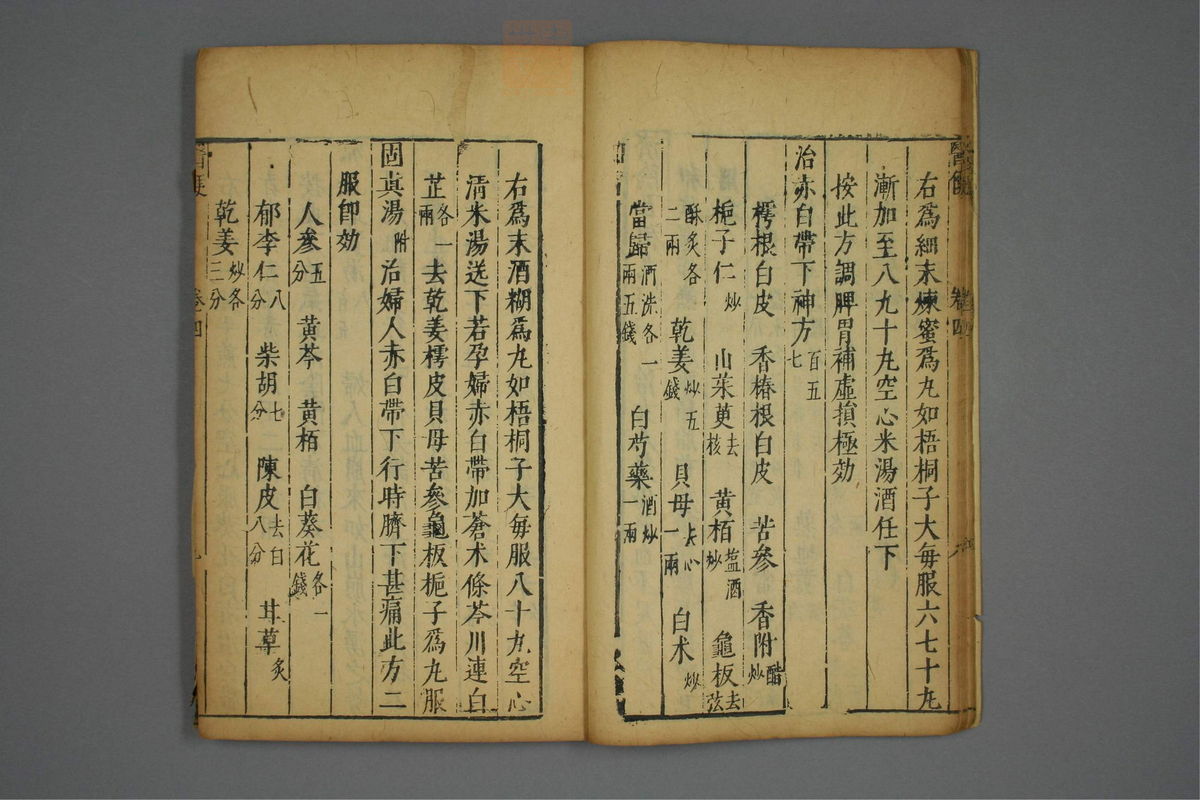 右爲細末煉蜜爲丸如梧桐子大每服六七十丸
漸加至八九十丸空心米湯酒任下
按此方調脾胃補虛損極効
治赤白帶下神方 百五七
樗根白皮 香椿根白皮 苦參 香附 醋炒
梔子仁 炒 山茱萸 去核 黃栢 塩酒炒 龜板 去弦
酥炙各二兩 乾姜 炒五錢 貝母 去心一兩 白朮 炒
當歸 酒洗各一兩五錢 白芍藥 酒炒一兩
右爲末酒糊爲丸如梧桐子大每服八十丸空心
清米湯送下若孕婦赤白帶加蒼朮條芩川連白
芷 各一兩 去乾姜樗皮貝母苦參龜板梔子爲丸服
固真湯 附 治婦人赤白帶下行時臍下甚痛此方二
服即効
人參 五分 黃芩 黃栢 白葵花 各一錢
郁李仁 八分 柴胡 七分 陳皮 去白八分 甘草 炙
乾姜 炒各三分
卷四